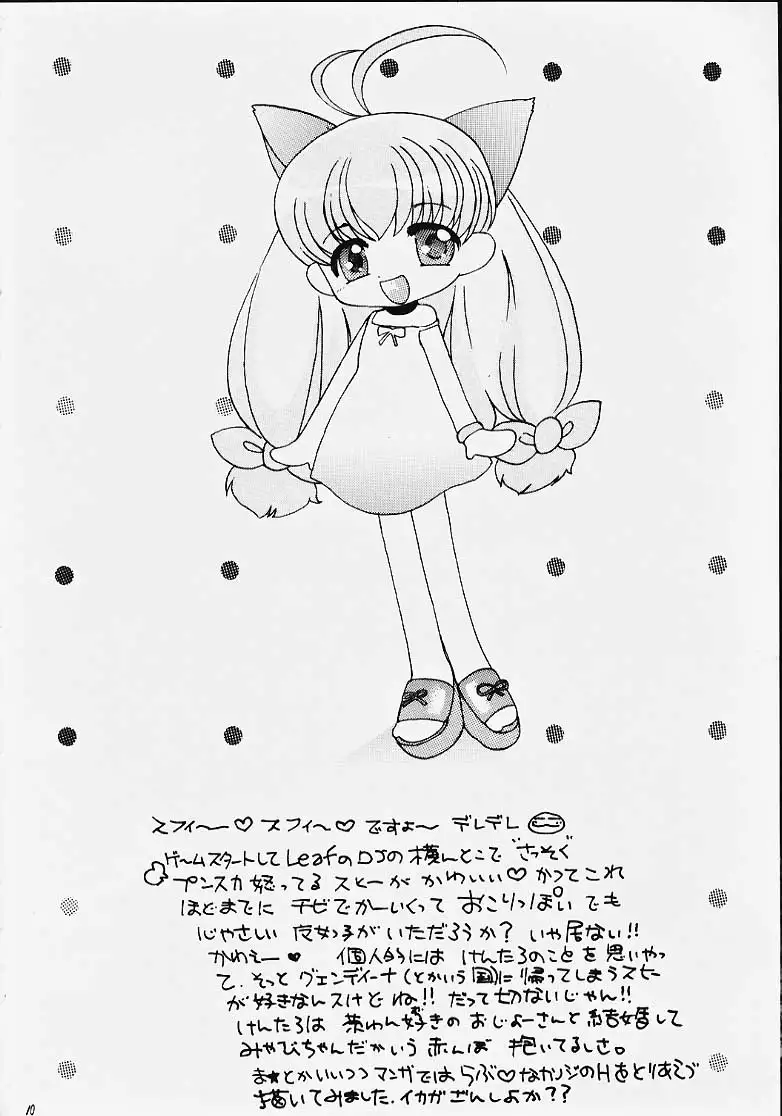 スフィ〜♡ スフィ〜♡ ですよ〜 デレデレ
ゲームスタートしてLeafのDJの横んとこで さっそく
プンスカ怒ってる スヒーが かわいい♡ かつてこれ
ほどまでに チビでかーいくって おこりっぽい でも
じゃさしい 女っ子が いただろうか? いや居ない!!
かわえー♥ 個人的には けんたろのことを 思いやっ
て、そっと グエンディーナ(とかいう国)に 帰ってしまうスヒー
が 好きなんスけど ね!! だって切ないじゃん!!
けんたろは 茶わん好きの おじょーさんと 結婚して
みやびちゃんだかいう 赤んぼ 抱いてるしさ。
ま★とかいいつつ マンガでは らぶ♡なカンジのHを とりあえづ
描いてみました、イカが ざんしよか??
10